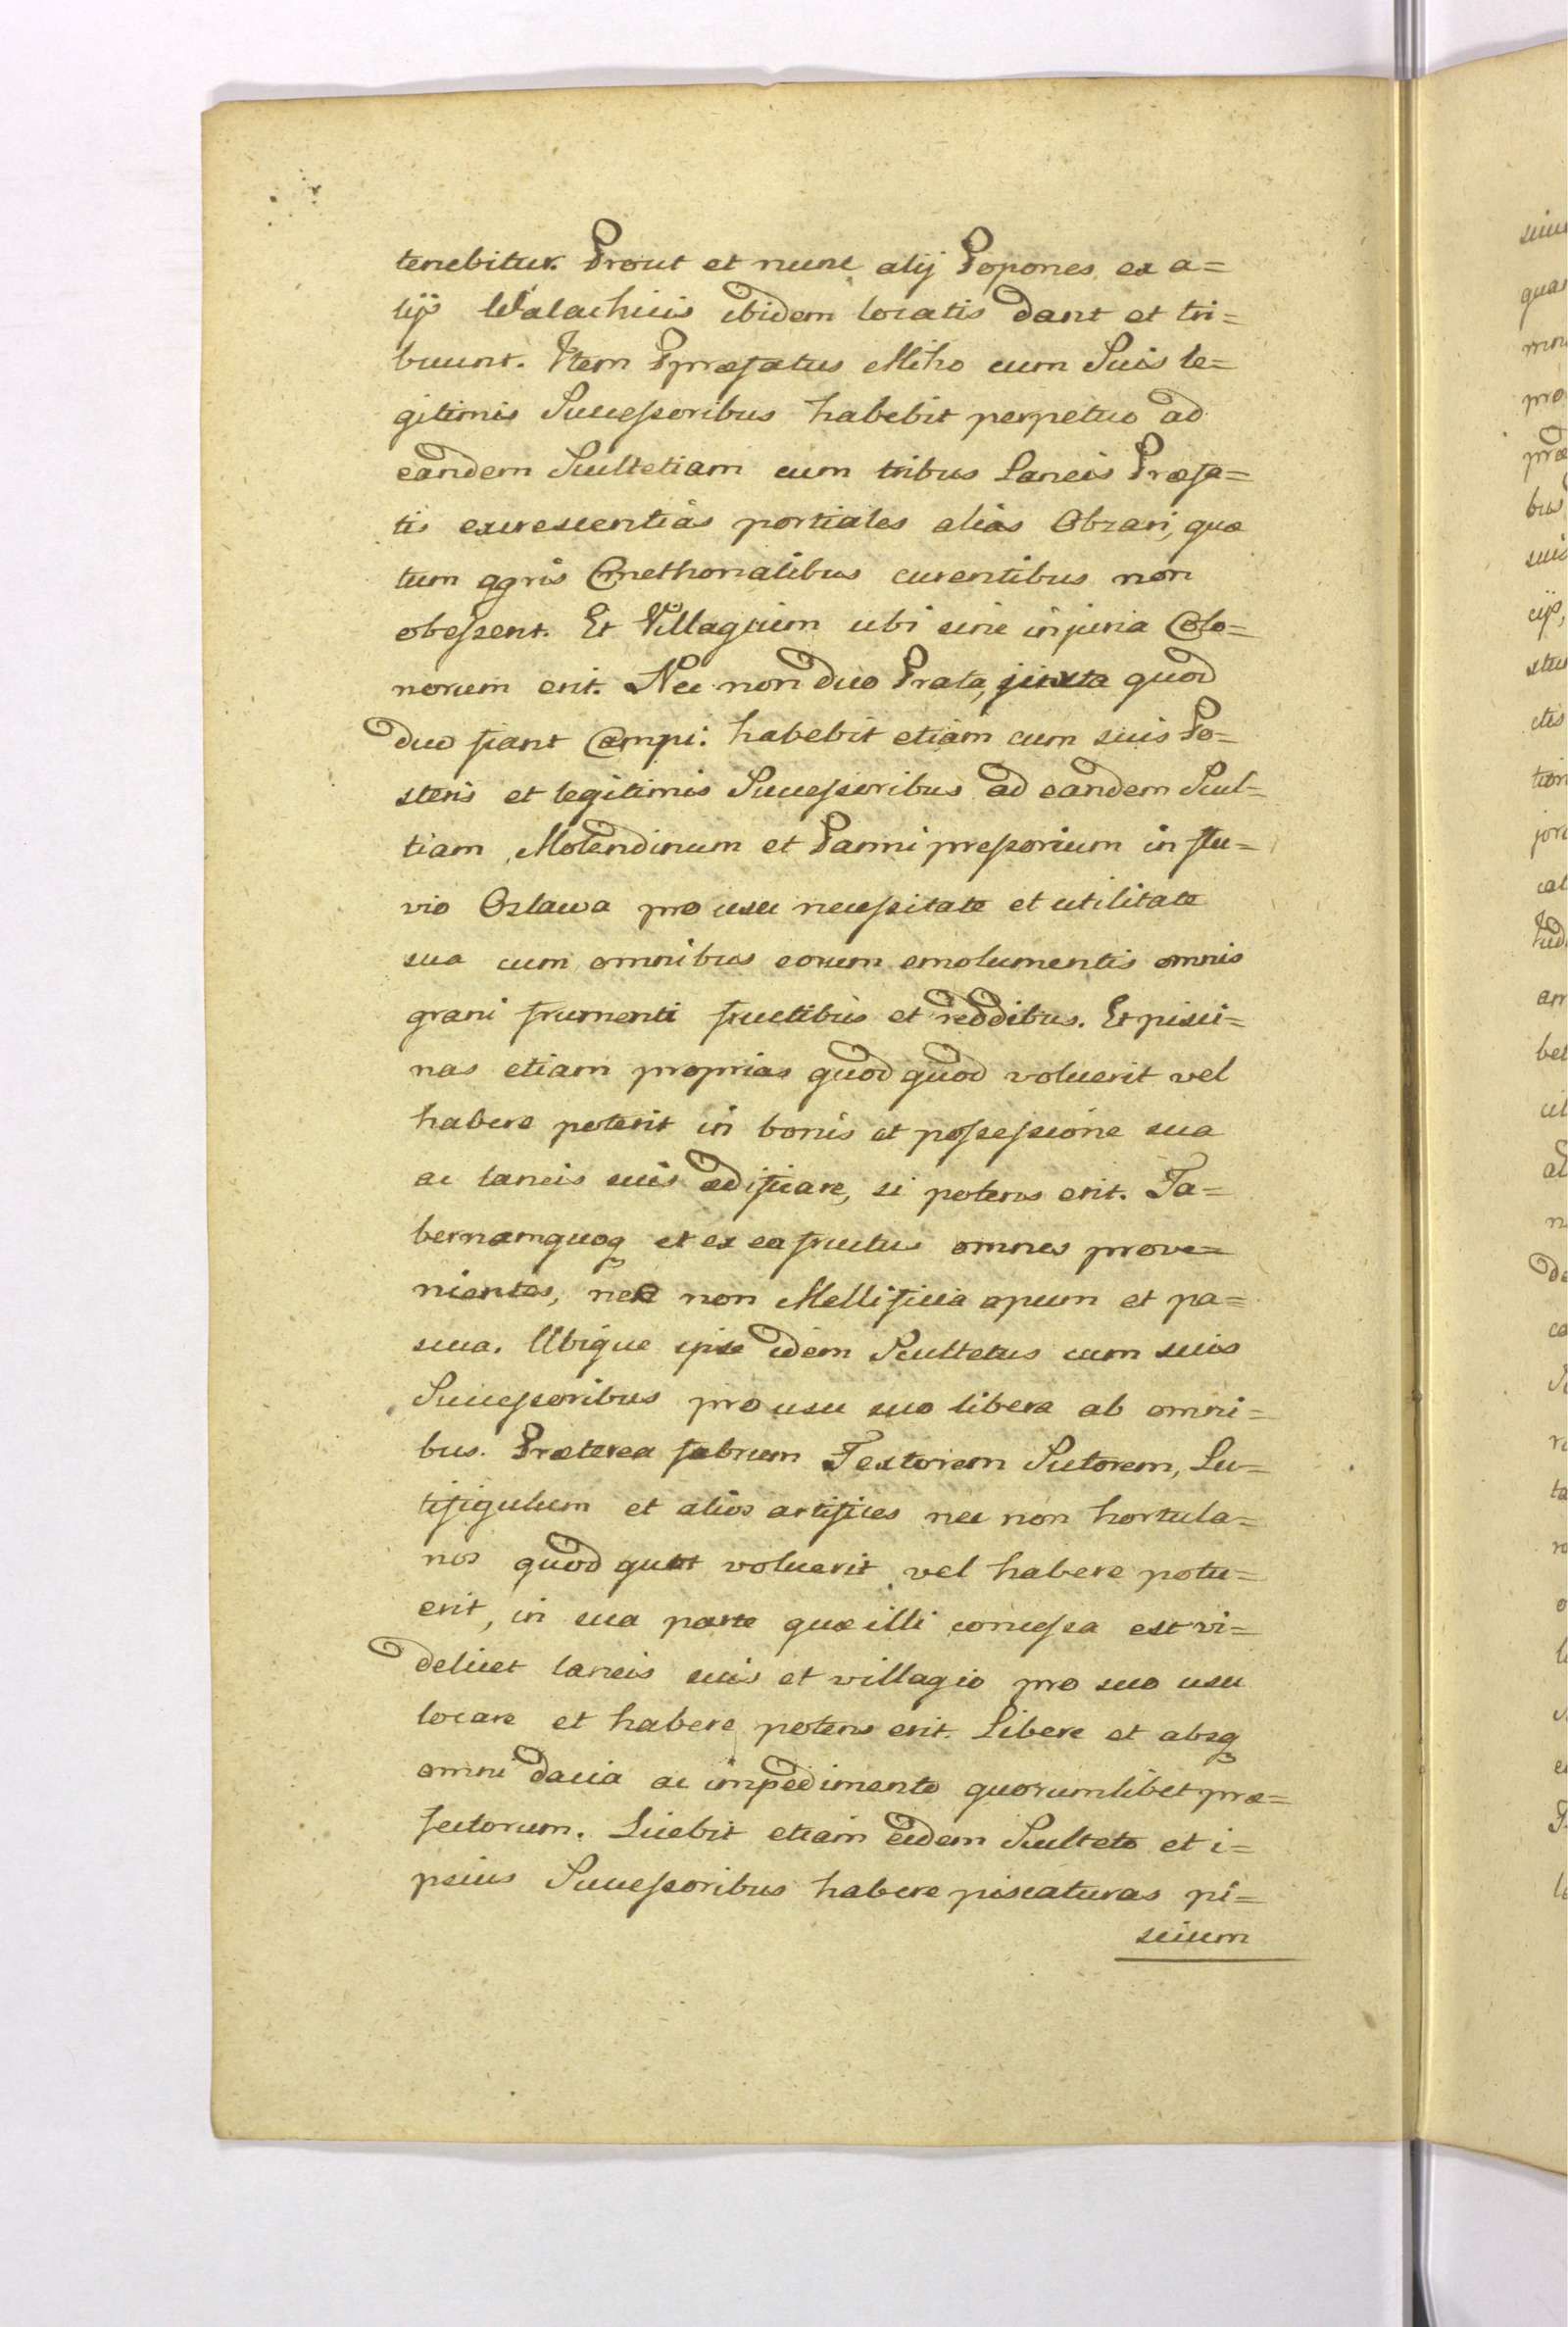 tenebitur. Prout et nunc alij Popones ex a=
lijs Walachicis ibidem locatis dant et tri=
buunt. Item Præfatus Miho cum Suis le=
gitimis Successoribus habebit perpetuo ad
eandem Scultetiam cum tribus Laneis Præfa=
tis excrescentias portiales alias Obzari, quæ
tum agris Cmethonalibus curentibus non
obessent. Et Villagium ubi sine injuria Colo=
norum erit. Nec non duo Prata, juxta quod
duo fiant Campi. habebit etiam cum suis Po=
steris et legitimis Successoribus ad eandem Scul=
tiam, Molendinum et Panni pressorium in flu=
vio Oslawa pro usu necessitate et utilitate
sua cum omnibus eorum emolumentis omnis
grani frumenti fructibus et reddibus. Et pisci=
nas etiam proprias quod quod voluerit vel
habere poterit in bonis et possessione sua
ac laneis suis ædificare, si potens erit. Ta=
bernamquoq et ex ea fructus omnes prove=
nientes, nec non Mellificia apum et pa=
scua. Ubique ipse idem Scultetus cum suis
Successoribus pro usu suo libera ab omni=
bus. Præterea fabrum Textorem Sutorem, Lu=
tifigulum et alios artifices nec non hortula=
nos quod quot voluerit vel habere potu=
erit, in sua parte quæ illi concessa est vi=
delicet laneis suis et villagio pro suo usu
locare et habere potens erit. Libere et absq
omni dacia ac impedimento quorumlibet præ=
fectorum. Licebit etiam eidem Sculteto et i=
psius Successoribus habere piscaturas pi=
scium